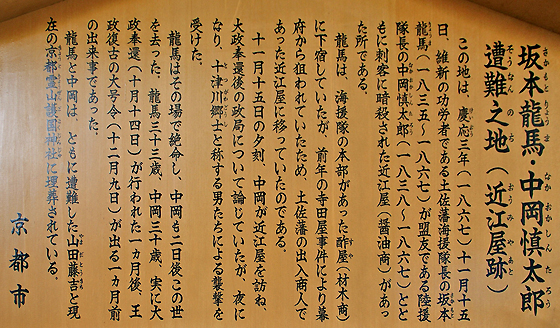 坂本龍馬・中岡慎太郎
さかもとりょうま なかおかしんたろう
遭難之地（近江屋跡）
そうなんのち おうみやあと
この地は、慶応三年（一八六七）十一月十五
日、維新の功労者である土佐藩海援隊長の坂本
龍馬（一八三五〜一八六七）が盟友である陸援
隊長の中岡慎太郎（一八三八〜一八六七）とと
もに刺客に暗殺された近江屋（醤油商）があっ
た所である。
龍馬は、海援隊の本部があった酢屋（材木商）
に下宿していたが、前年の寺田屋事件により幕
府から狙われていたため、土佐藩の出入商人で
あった近江屋に移っていたのである。
十一月十五日の夕刻、中岡が近江屋を訪ね、
大政奉還後の政局について論じていたが、夜に
なり、十津川郷士と称する男たちによる襲撃を
受けた。
龍馬はその場で絶命し、中岡も二日後この世
を去った。龍馬三十三歳、中岡三十歳、実に大
政奉還（十月十四日）が行われた一カ月後、王
政復古の大号令（十二月九日）が出る一カ月前
の出来事であった。
龍馬と中岡は、ともに遭難した山田藤吉と現
在の京都霊山護国神社に埋葬されている。
京都市